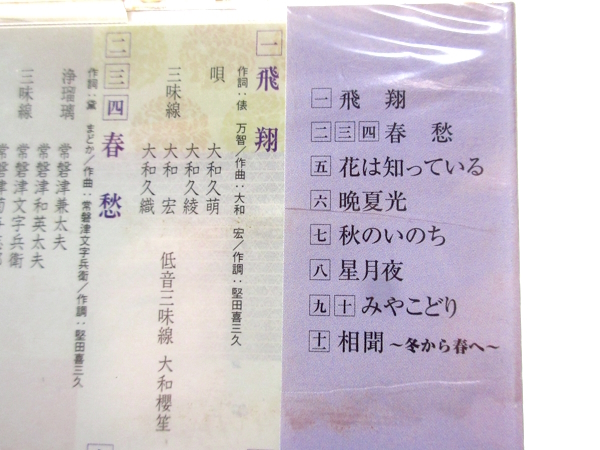 一 飛翔
作詞：俵 万智／作曲：大和 宏／作調：堅田喜三久
唄 大和久萌
大和久綾
三味線 大和 宏 低音三味線 大和櫻笙
大和久織
二 三 四 春愁
作詞：黛 まどか／作曲：常磐津文字兵衛／作調：堅田喜三久
浄瑠璃 常磐津兼太夫
常磐津和英太夫
三味線 常磐津文字兵衛
一 飛 翔
二 三 四 春 愁
五 花は知っている
六 晩夏光
七 秋のいのち
八 星月夜
九 十 みやこどり
十一 相聞 〜冬から春へ〜